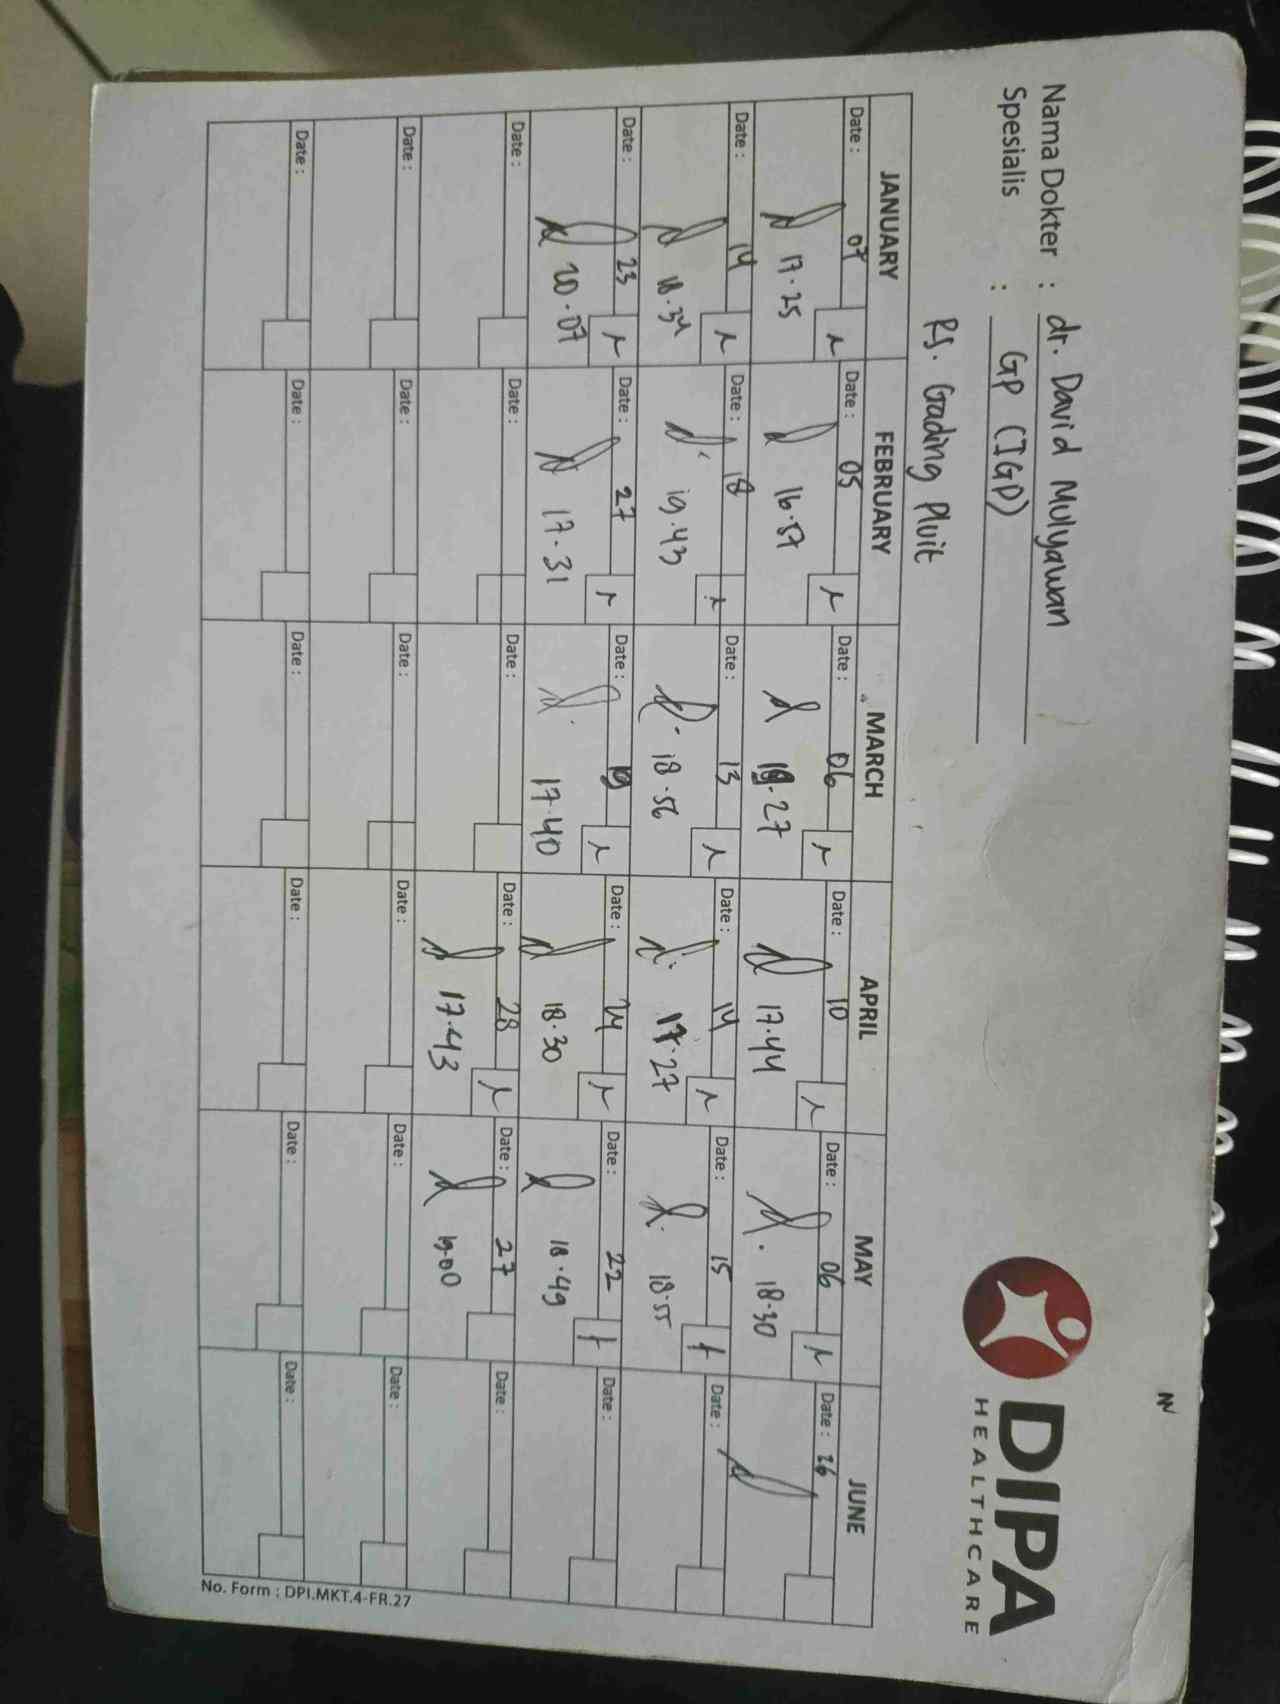 DIPA
HEALTHCARE
Nama Dokter : dr. David Mulyawan
Spesialis : GP (IGD)
RS. Gading Pluit
JANUARY FEBRUARY MARCH APRIL MAY JUNE
Date : 07 Date : 05 Date : 06 Date : 10 Date : 06 Date : 26
17.25 16.57 18.27 17.44 18.30
Date : 14 Date : 18 Date : 13 Date : 14 Date : 15 Date :
18.34 19.43 18.56 17.27 18.55
Date : 23 Date : 27 Date : 19 Date : 24 Date : 22 Date :
20.07 17.31 17.40 18.30 18.49
Date : Date : Date : Date : 28 Date : 27 Date :
17.43 19.00
Date : Date : Date : Date : Date : Date :
Date : Date : Date : Date : Date : Date :
No. Form : DPI.MKT.4-FR.27